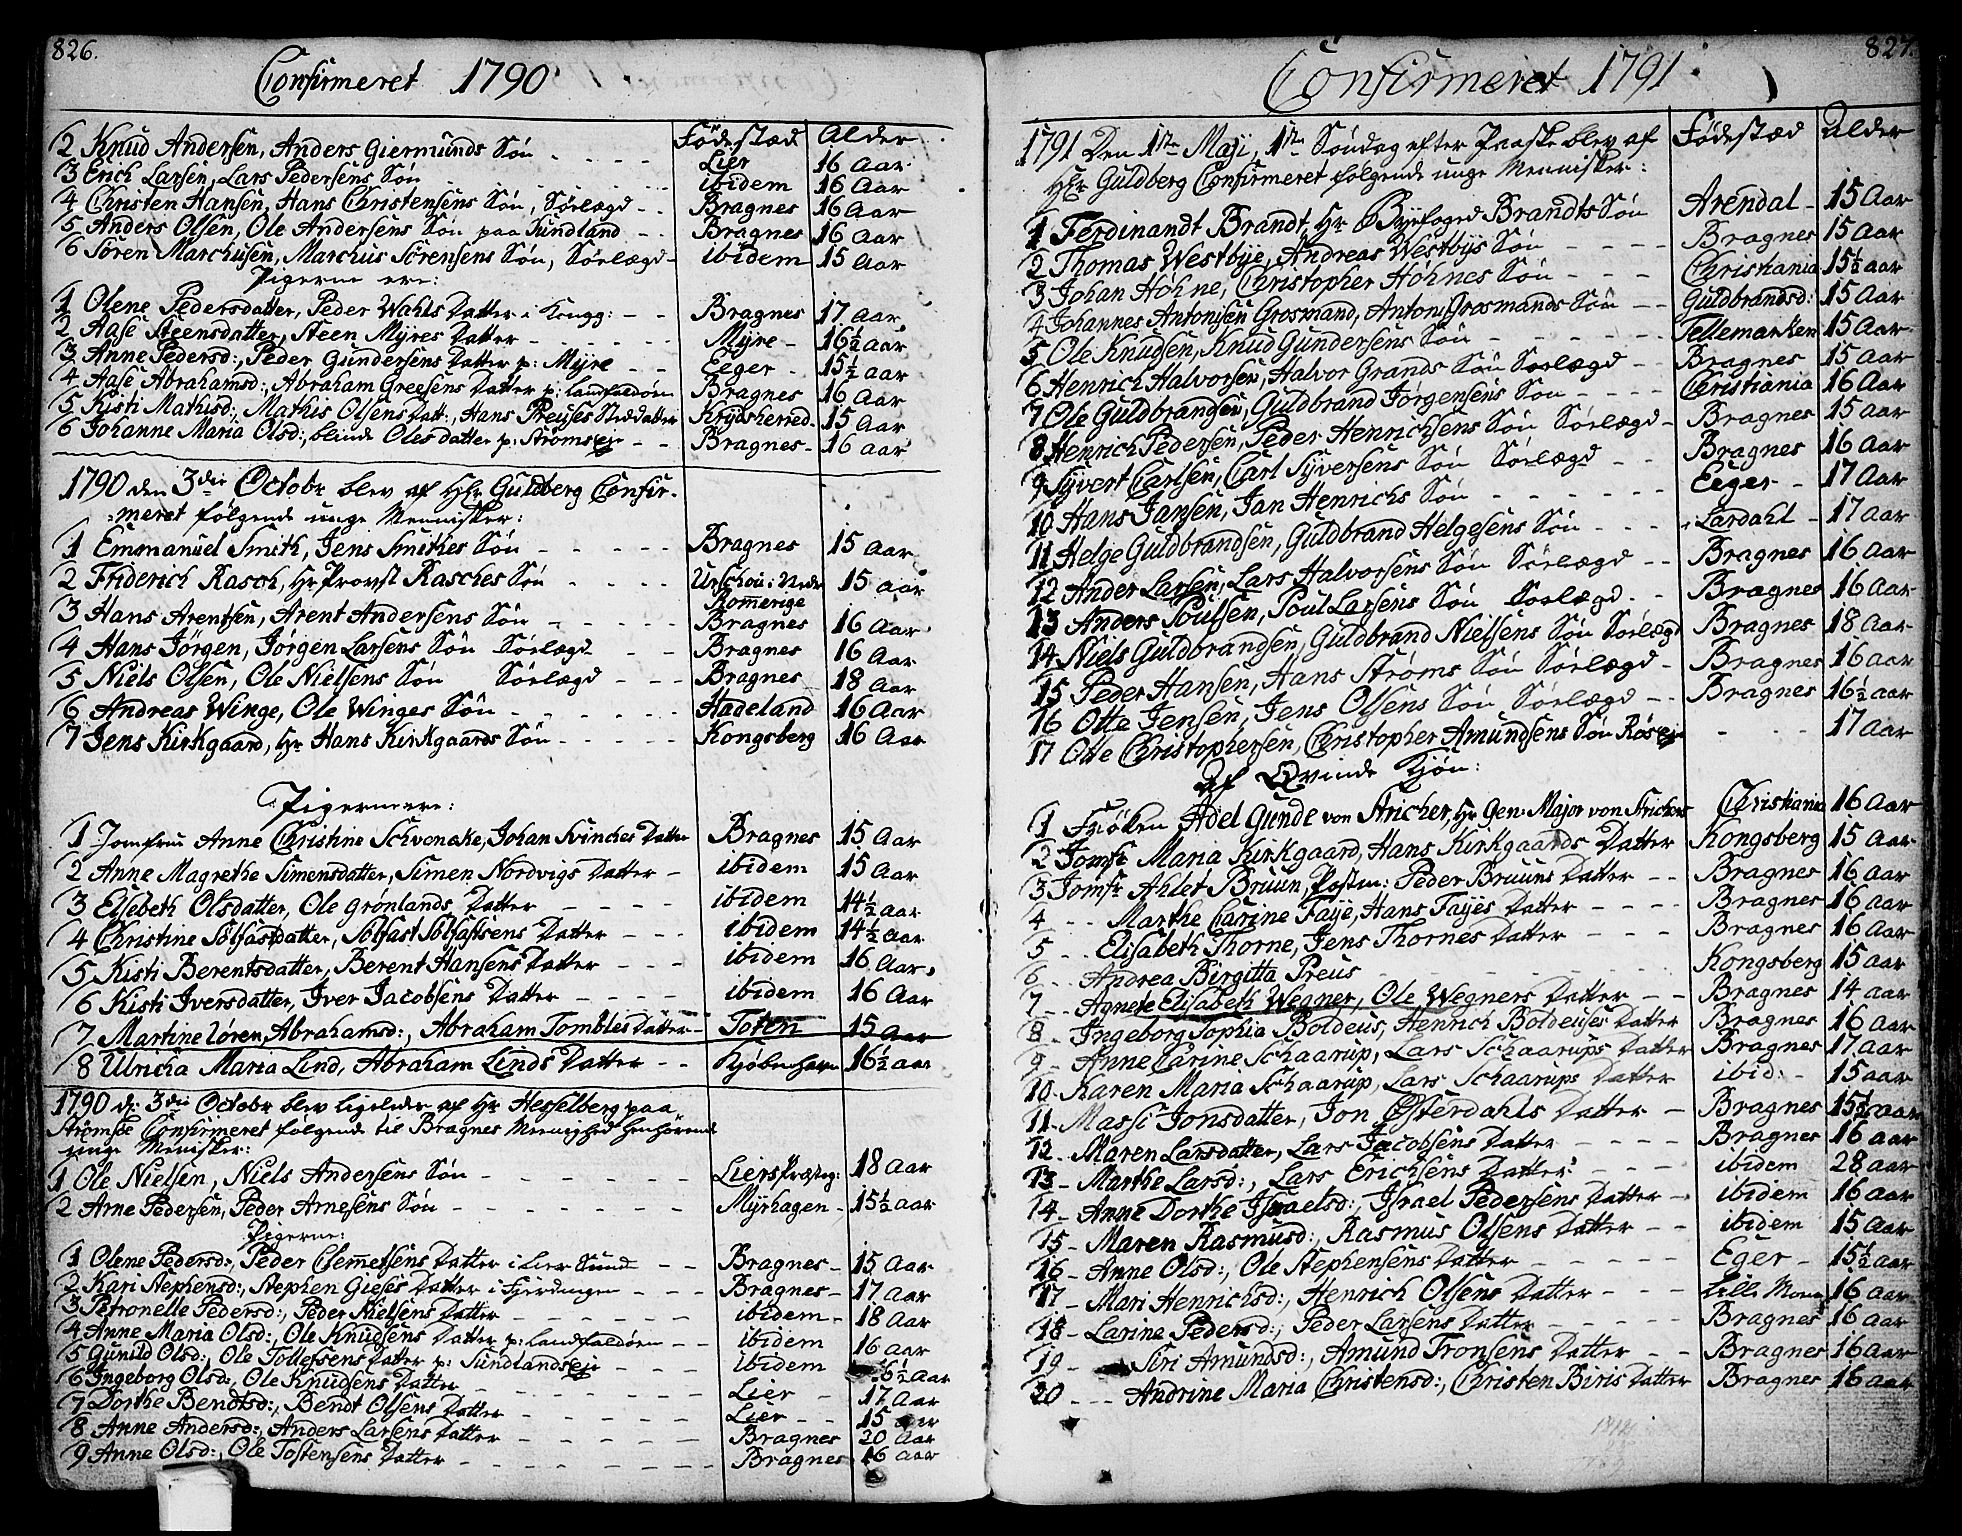 826.
Confirmeret 1790
Fødestæd Alder
2 Knud Andersen, Anders Giermunds Søn Lier 16 Aar
3 Erich Larsen, Lars Pedersens Søn ibidem 16 Aar
4 Christen Hansen, Hans Christensens Søn, Sørlægd Bragnes 16 Aar
5 Anders Olsen, Ole Andersens Søn paa Sundland Bragnes 16 Aar
6 Søren Marchusen, Marchus Sørensens Søn, Sørlægd ibidem 15 Aar
Pigerne ere:
1 Olene Pedersdatter, Peder Wahls Datter i Bragnes 17 Aar
2 Aase Steensdatter, Steen Myres Datter Myre 16½ Aar
3 Anne Pedersd:, Peder Gundersens Datter p: Myre Eeger 15½ Aar
4 Aase Abrahamsd:, Abraham Greesens Datter p: Landfaldøen Bragnes 16 Aar
5 Kisti Mathisd:, Mathis Olsens Datt:, Hans Preuses Stedatter Krydsherred 15 Aar
6 Johanne Maria Olsd:, blinde Oles datter p: Strømsøe Bragnes 16 Aar
1790 den 3die Octobr blev af Hr Guldberg Confir-
meret følgende unge Mennisker:
1 Emmanuel Smith, Jens Smithes Søn Bragnes 15 Aar
2 Friderich Rasch, Hr Provst Rasches Søn Urschou i Nedr Rommerige 15 Aar
3 Hans Arentsen, Arent Andersens Søn Bragnes 16 Aar
4 Hans Jörgen, Jørgen Larsens Søn Sørlægd Bragnes 16 Aar
5 Niels Olsen, Ole Nielsens Søn Sørlægd Bragnes 18 Aar
6 Andreas Winge, Ole Winges Søn Hadeland 16 Aar
7 Jens Kirkgaard, Hr Hans Kirkgaards Søn Kongsberg 16 Aar
Pigerne ere:
1 Jomfrue Anne Christine Schvencke, Johan Datter Bragnes 15 Aar
2 Anne Magrethe Simensdatter, Simen Nordvigs Datter ibidem 15 Aar
3 Elsebeth Olsdatter, Ole Grønlands Datter ibidem 14½ Aar
4 Christine Sølfastdatter, Sølfast Sølfastsens Datter ibidem 14½ Aar
5 Kisti Berentsdatter, Berent Hansens Datter ibidem 16 Aar
6 Kisti Iversdatter, Iver Jacobsens Datter ibidem 16 Aar
7 Martine Lören Abrahamsd:, Abraham Tombles Datter Toten 15 Aar
8 Ulricha Maria Lind, Abraham Linds Datter Kjøbenhavn 16½ aar
1790 d: 3die Octobr blev ligeledes af Hr Hesselberg paa
Strømsøe Confirmeret følgende til Bragnes Meenighed henhørende
unge Menisker:
1 Ole Nielsen, Niels Andersens Søn Liers Præsteg: 18 Aar
2 Arne Pedersen, Peder Arnesens Søn Myrhagen 15½ aar
Pigerne:
1 Olene Pedersd:, Peder Clemetsens Datter i Lier Sund Bragnes 15 Aar
2 Kari Stephensd:, Stephen Gieses Datter i Fjerdingen Bragnes 17 Aar
3 Petronelle Pedersd:, Peder Nielsens Datter ibidem 18 Aar
4 Anne Maria Olsd:, Ole Knudsens Datter p: Landfaldøen ibidem 16 Aar
5 Gunild Olsd:, Ole Tollefsens Datter p: Sundlandseje ibidem 6½ Aar
6 Ingeborg Olsd:, Ole Knudsens Datter Lier 17 Aar
7 Dorthe Bendtsd:, Bendt Olsens Datter Lier 15 Aar
8 Anne Andersd:, Anders Larsens Datter Bragnes 20 Aar
9 Anne Olsd:, Ole Tostensens Datter Bragnes 16 Aar
827.
Confirmeret 1791
1791 Den 1ste Maji, 1ste Søndag efter Paaske blev af Fødestæd Alder
Hr Guldberg Confirmeret følgende unge Mennisker:
1 Ferdinandt Brandt, Hr Byefoged Brandts Søn Arendal 15 Aar
2 Thomas Westbye, Andreas Westbys Søn Bragnes 15 Aar
3 Johan Höhne, Christopher Höhnes Søn Christiania 15½ aar
4 Johannes Antonisen Grosmand, Antoni Grosmands Søn Guldbrandsd: 15 Aar
5 Ole Knudsen, Knud Gundersens Søn Tellemarken 15 Aar
6 Henrich Halvorsen, Halvor Grands Søn Sørlægd Bragnes 15 Aar
7 Ole Guldbrandsen, Guldbrand Jørgensens Søn Christiania 16 Aar
8 Henrich Pedersen, Peder Henrichsens Søn Sørlægd Bragnes 15 Aar
9 Syvert Carlsen, Carl Syversens Søn Sørlægd Bragnes 16 Aar
10 Hans Jansen, Jan Henrichs Søn Eeger 17 Aar
11 Helge Guldbrandsen, Guldbrand Helgesens Søn Lardahl 17 Aar
12 Ander Larsen, Lars Halvorsens Søn Sørlægd Bragnes 16 Aar
13 Anders Poulsen, Poul Larsens Søn Sørlægd Bragnes 16 Aar
14 Niels Guldbrandsen, Guldbrand Nielsens Søn Sørlægd Bragnes 18 Aar
15 Peder Hansen, Hans Strøms Søn Sørlægd Bragnes 16 Aar
16 Otte Jensen, Jens Olsens Søn Sørlægd Bragnes 16½ aar
17 Otte Christophersen, Christopher Amundsens Søn 17 Aar
Af Qvinde Kjøn:
1 Frøken Adel Gunde von Stricher, Hr Gen: Major von Strichers Christiania 16 Aar
2 Jomfr Maria Kirkgaard, Hans Kirkgaards Datter Kongsberg 15 Aar
3 Jomfr Ahlet Bruun, Postm: Peder Bruuns Datter Bragnes 16 Aar
4 Marthe Carine Faye, Hans Fayes Datter Bragnes 16 Aar
5 Elisabeth Thorne, Jens Thornes Datter Bragnes 16 Aar
6 Andrea Birgitta Preus Kongsberg 15 Aar
7 Agnete Elisabeth Wegner, Ole Wegners Datter Bragnes 14 Aar
8 Ingeborg Sophia Boldeus, Henrich Boldeuses Datter Bragnes 16 Aar
9 Anne Carine Schaarup, Lars Schaarups Datter Bragnes 17 Aar
10 Karen Maria Schaarup, Lars Schaarups Datter ibid: 15 Aar
11 Massi Jonsdatter, Jon Østerdahls Datter Bragnes 15½ Aar
12 Maren Larsdatter, Lars Jacobsens Datter Bragnes 16 Aar
13 Marthe Larsd:, Lars Erichsens Datter ibidem 28 Aar
14 Anne Dorthe Israelsd:, Israel Pedersens Datter ibidem 16 Aar
15 Maren Rasmusd:, Rasmus Olsens Datter ibidem 15 Aar
16 Anne Olsd:, Ole Stephensens Datter Eger 15½ Aar
17 Mari Henrichsd:, Henrich Olsens Datter Lille 16 Aar
18 Larine Pedersd:, Peder Larsens Datter Bragnes 16 Aar
19 Siri Amundsd:, Amund Tronsens Datter Bragnes 16 Aar
20 Andrine Maria Christensd:, Christen Biris Datter Bragnes 16 Aar